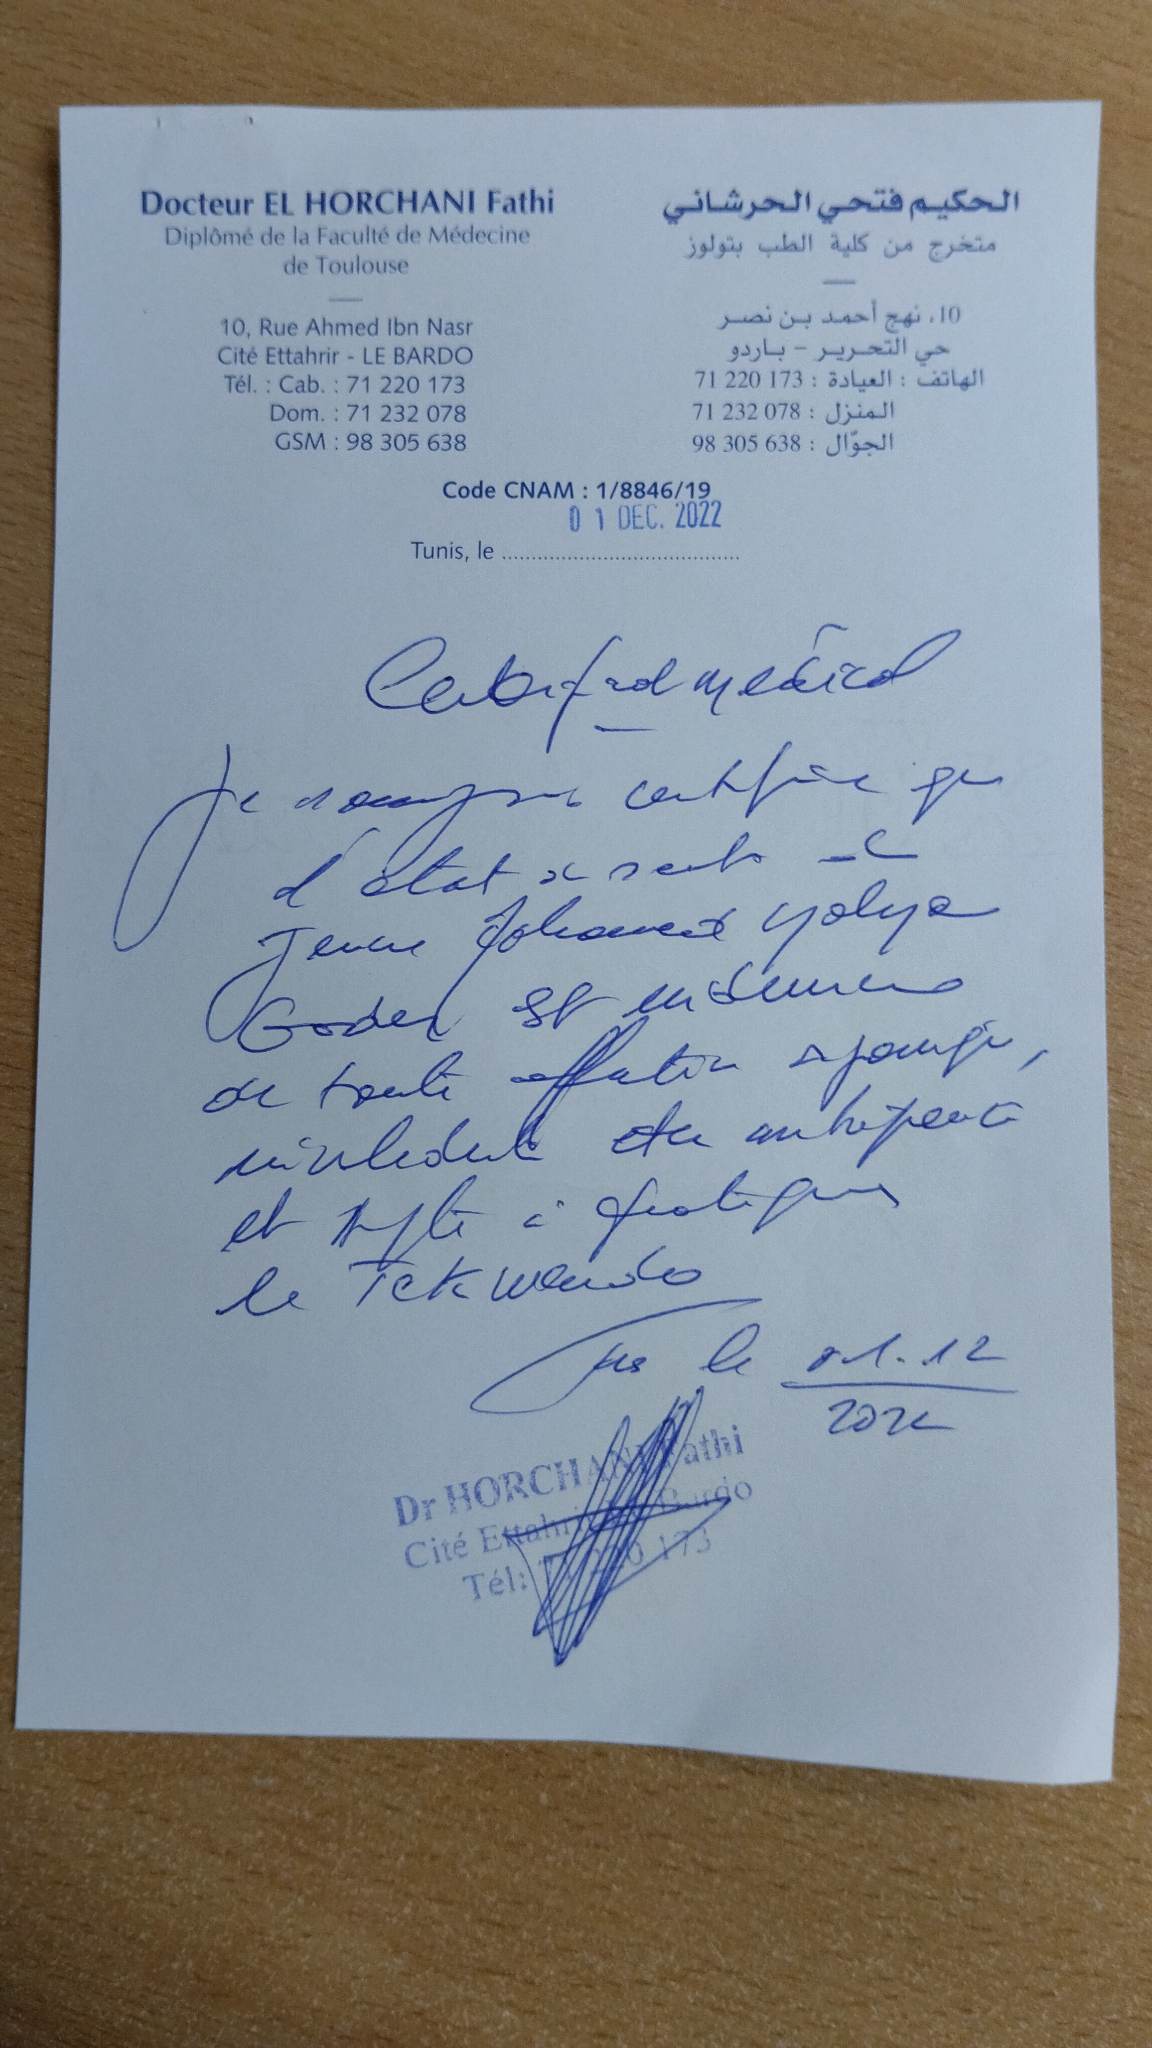 Docteur EL HORCHANI Fathi
Diplômé de la Faculté de Médecine
de Toulouse
10, Rue Ahmed Ibn Nasr
Cité Ettahrir - LE BARDO
Tél. : Cab. : 71 220 173
Dom. : 71 232 078
GSM : 98 305 638
الحكيم فتحي الحرشاني
متخرج من كلية الطب بتولوز
10، نهج أحمد بن نصر
حي التحرير - باردو
الهاتف : العيادة : 173 220 71
المنزل : 078 232 71
الجوّال : 638 305 98
Code CNAM : 1/8846/19
01 DEC. 2022
Tunis, le ........................................
Certificat médical
Je soussigné certifie que
l'état de santé de
Jeune Mohamed Yahya
est indemne
de toute affection
et apte à pratiquer
le Tekwendo
le 01.12
2022
Dr HORCHANI Fathi
Cité Ettahrir Bardo
Tél: 71 220 173